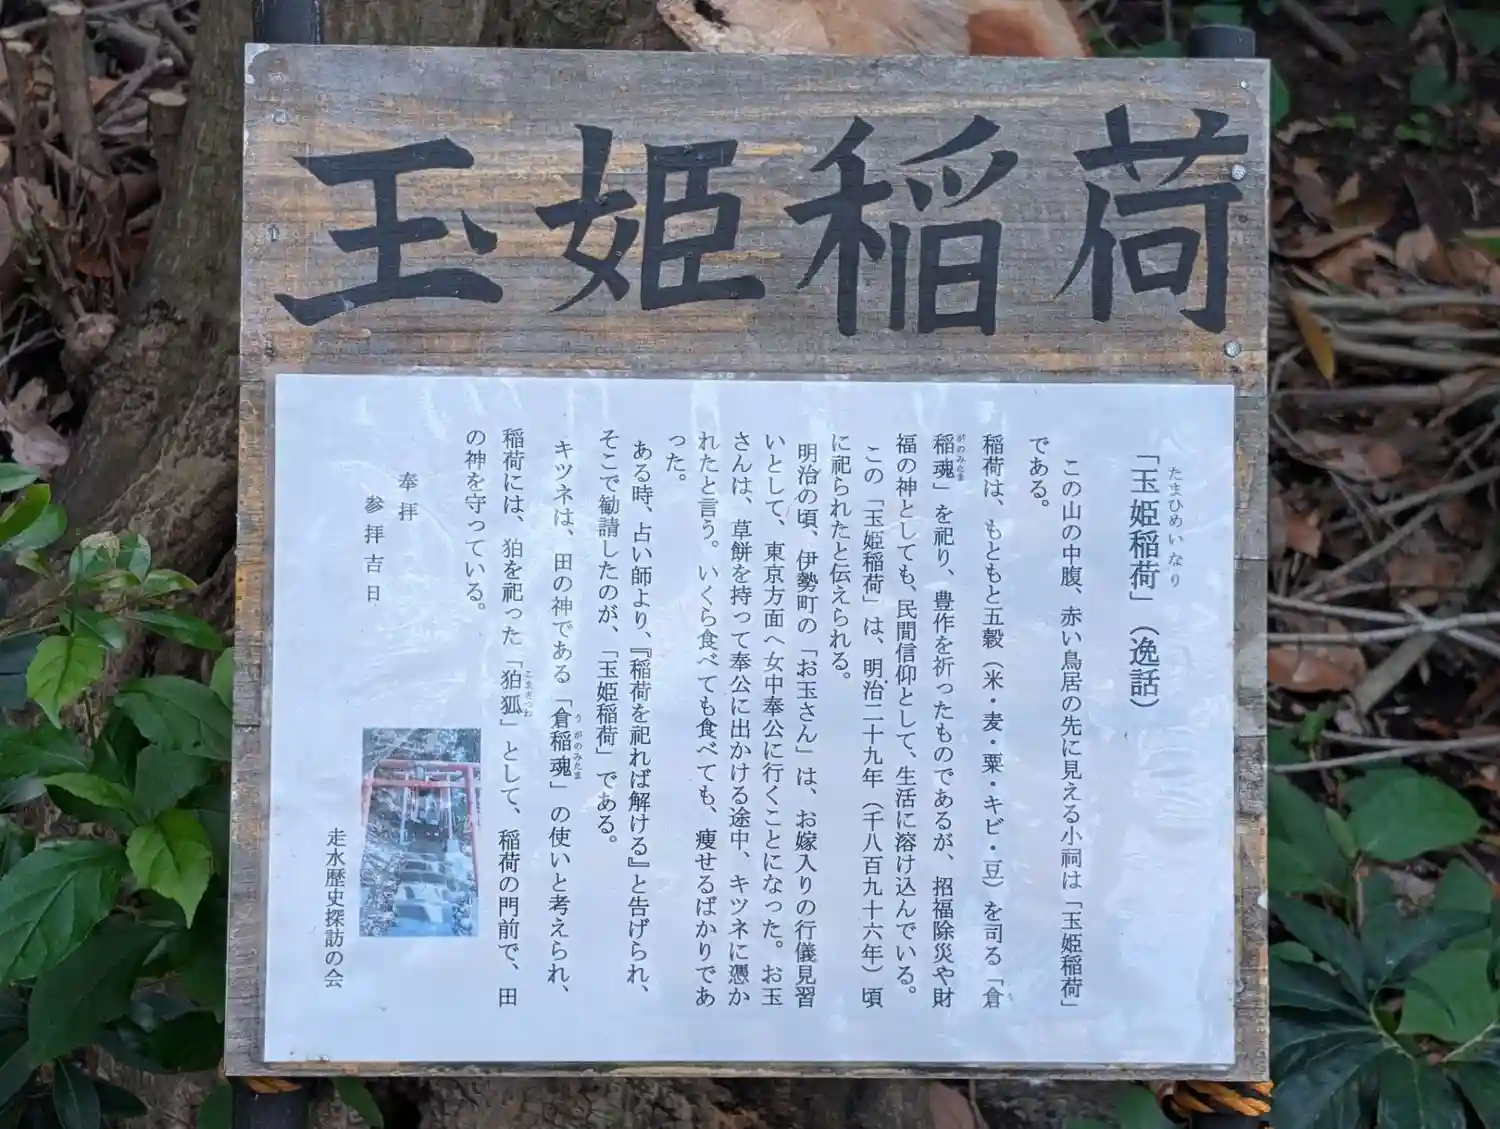 玉姫稲荷
「玉姫稲荷」（逸話）
たまひめいなり
この山の中腹、赤い鳥居の先に見える小祠は「玉姫稲荷」
である。
稲荷は、もともと五穀（米・麦・粟・キビ・豆）を司る「倉
う
稲魂」を祀り、豊作を祈ったものであるが、招福除災や財
がのみたま
福の神としても、民間信仰として、生活に溶け込んでいる。
この「玉姫稲荷」は、明治二十九年（千八百九十六年）頃
に祀られたと伝えられる。
明治の頃、伊勢町の「お玉さん」は、お嫁入りの行儀見習
いとして、東京方面へ女中奉公に行くことになった。お玉
さんは、草餅を持って奉公に出かける途中、キツネに憑か
れたと言う。いくら食べても食べても、痩せるばかりであ
った。
ある時、占い師より、『稲荷を祀れば解ける』と告げられ、
そこで勧請したのが、「玉姫稲荷」である。
キツネは、田の神である「倉稲魂」の使いと考えられ、
うがのみたま
稲荷には、狛を祀った「狛狐」として、稲荷の門前で、田
こまぎつね
の神を守っている。
奉拝
参拝吉日
走水歴史探訪の会